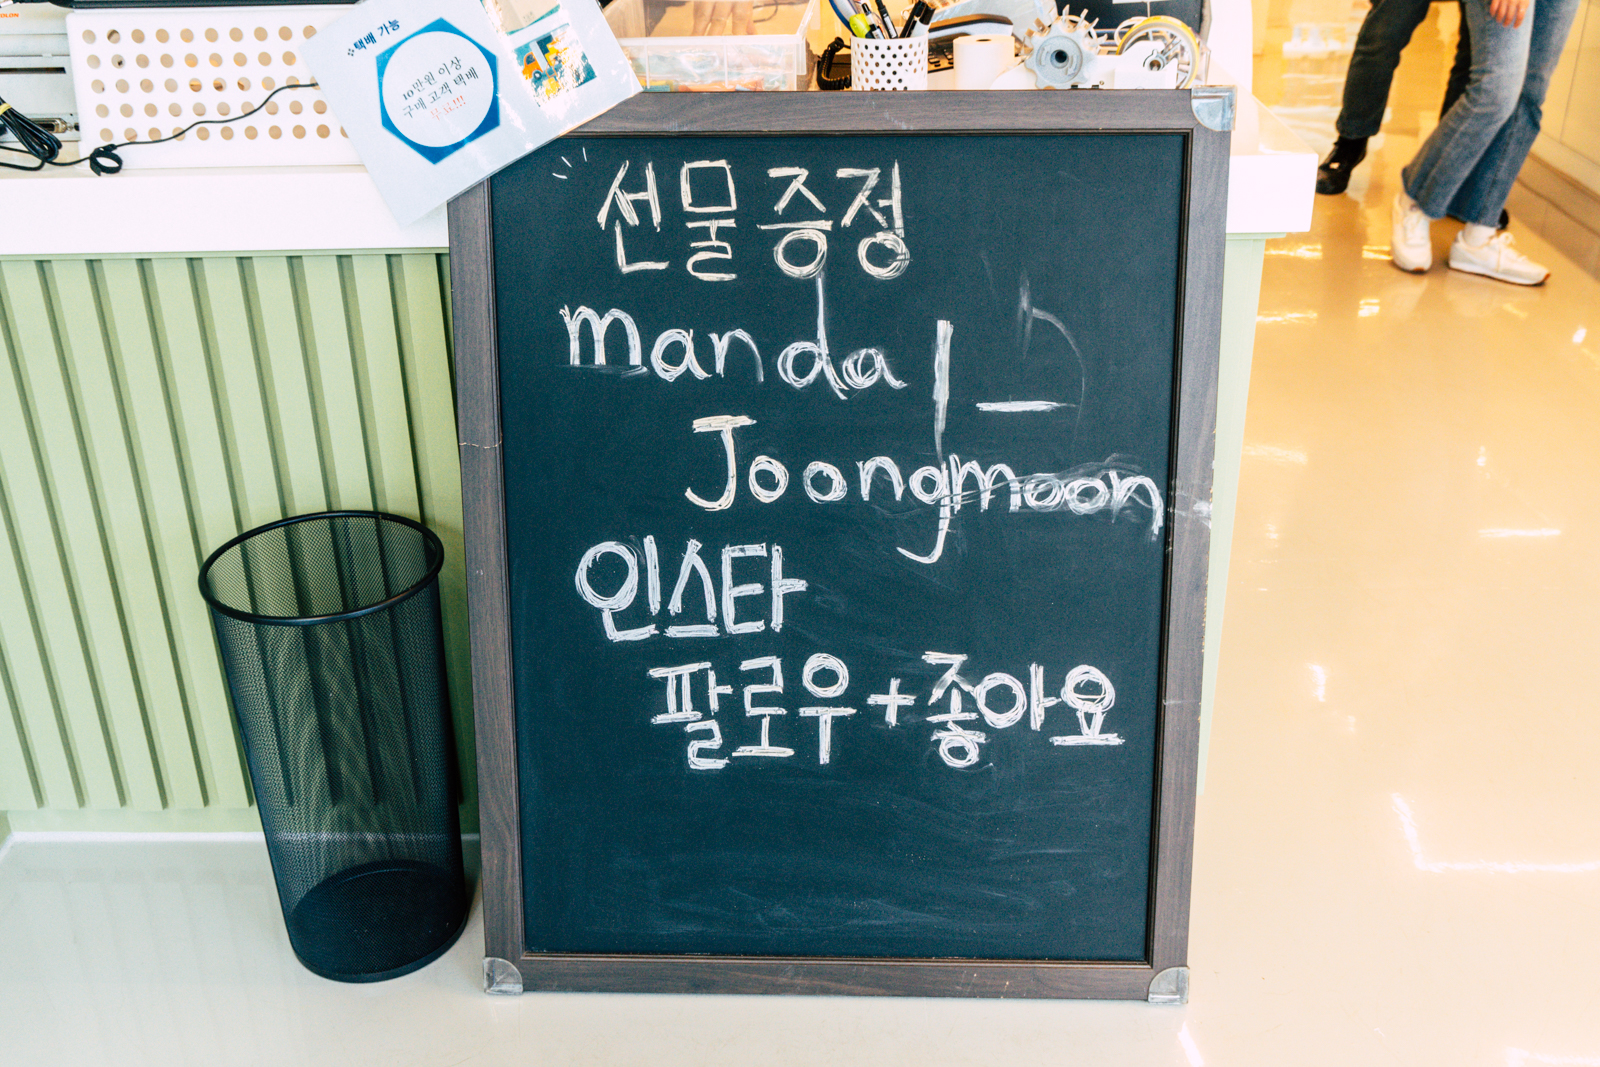 택배 가능
10만원 이상
구매 고객 택배
무료!!!
선물증정
manda_
Joongmoon
인스타
팔로우+좋아요